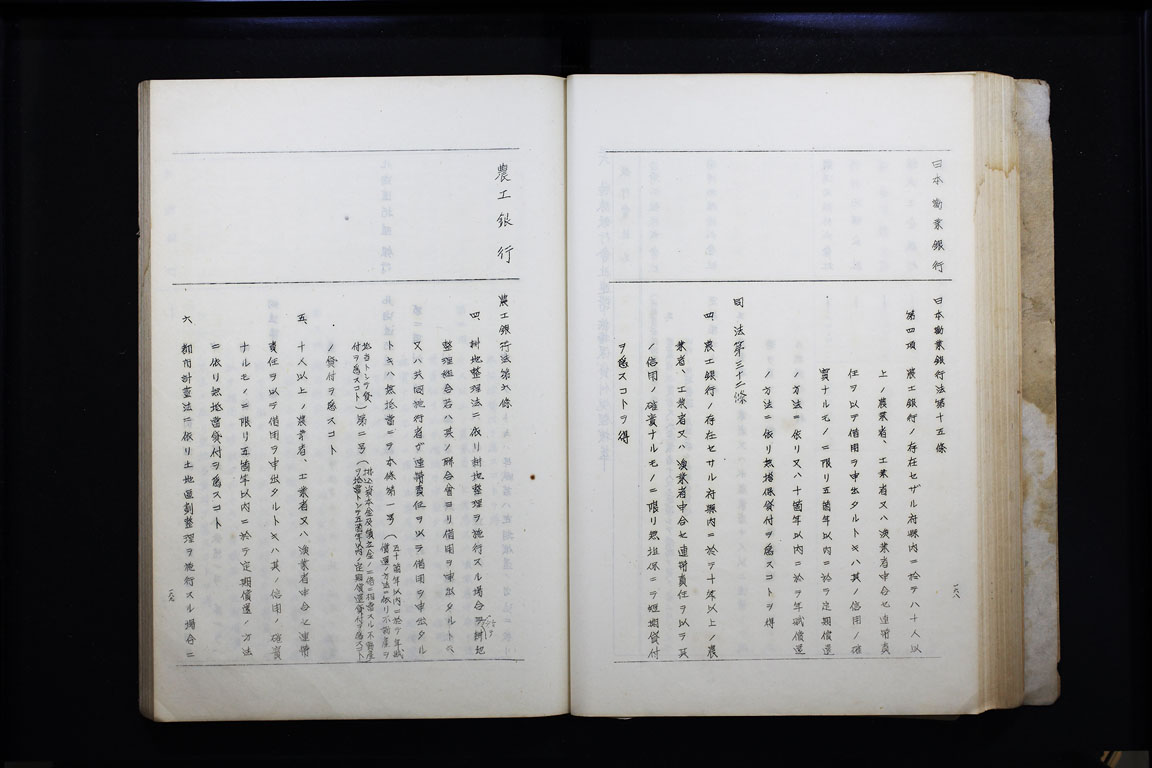 日本勸業銀行
日本勸業銀行法第十五條
第四項 農工銀行ノ存在セザル府縣內ニ於テハ十人以
上ノ農業者、工業者又ハ漁業者申合セ連帶責
任ヲ以テ借用ヲ申出タルトキハ其ノ信用ノ確
實ナルモノニ限リ五箇年以內ニ於テ定期償還
ノ方法ニ依リ又ハ十箇年以內ニ於テ年賦償還
ノ方法ニ依リ無擔保貸付ヲ爲スコトヲ得
同法第三十二條
四、農工銀行ノ存在セサル府縣內ニ於テ十年以上ノ農
業者、工業者又ハ漁業者申合セ連帶責任ヲ以テ其
ノ信用ノ確實ナルモノニ限リ無擔保ニテ短期貸付
ヲ爲スコトヲ得
一六八
農工銀行
農工銀行法第六條
四、耕地整理法ニ依リ耕地整理ヲ施行スル場合耕地
整理組合若ハ其ノ聯合會ヨリ借用ヲ申出タルトキ
又ハ共同施行者ガ連帶責任ヲ以テ借用ヲ申出タル
トキハ無擔當ニテ本條第一号(五十箇年以內ニ於テ年賦
償還ノ方法ニ依リ不動產ヲ
抵当トシテ貸
付ヲ爲スコト)第二号(拂込資本金及積立金ノ二倍ニ相當スル不動產
ヲ抵當トシテ五箇年以內ノ定期償還貸付ヲ爲スコト
ノ貸付ヲ爲スコト
五、十人以上ノ農業者、工業者又ハ漁業者申合セ連帶
責任ヲ以テ借用ヲ申出タルトキハ其ノ信用ノ確實
ナルモノニ限リ五箇年以內ニ於テ定期償還ノ方法
ニ依リ無抵當貸付ヲ爲スコト
六、都市計畫法ニ依リ土地區劃整理ヲ施行スル場合ニ
一六九